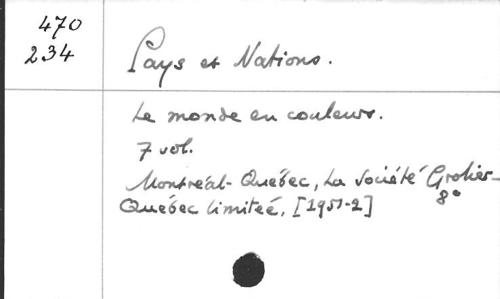 470
234
Pays et Nations.
Le monde en couleurs.
7 vol.
Montréal-Québec, La Société Grolier-
Québec limiteé, [1951-2] 8°